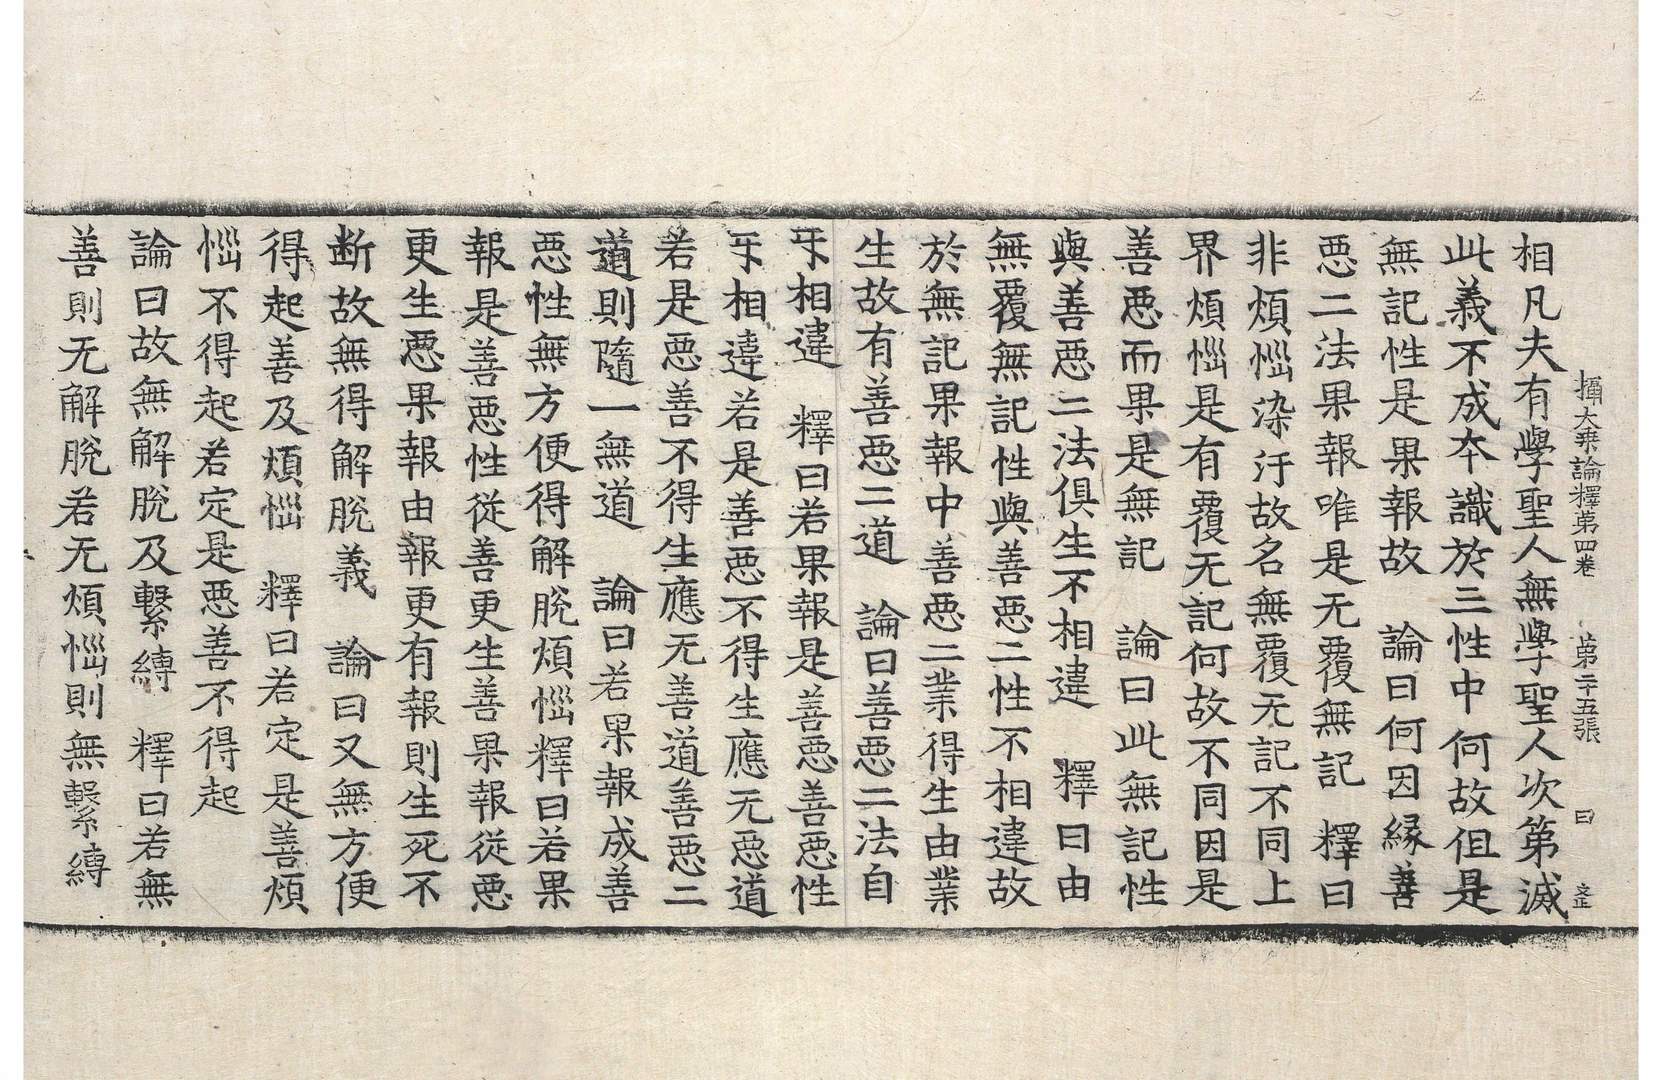 攝大乗論釋第四卷 第二十五張 曰
相凡夫有學聖人無學聖人次第滅
此義不成夲識於三性中何故但是
無記性是果報故 論曰何因緣善
惡二法果報唯是无覆無記 釋曰
非煩惱染汙故名無覆无記不同上
界煩惱是有覆无記何故不同因是
善惡而果是無記 論曰此無記性
與善惡二法俱生不相違 釋曰由
無覆無記性與善惡二性不相違故
於無記果報中善惡二業得生由業
生故有善惡二道 論曰善惡二法自
㸦相違 釋曰若果報是善惡善惡性
㸦相違若是善惡不得生應无惡道
若是惡善不得生應无善道善惡二
道則隨一無道 論曰若果報成善
惡性無方便得解脫煩惱釋曰若果
報是善惡性從善更生善果報從惡
更生惡果報由報更有報則生死不
断故無得解脫義 論曰又無方便
得起善及煩惱 釋曰若定是善煩
惱不得起若定是惡善不得起
論曰故無解脫及繫縛 釋曰若無
善則无解脫若无煩惱則無繫縛